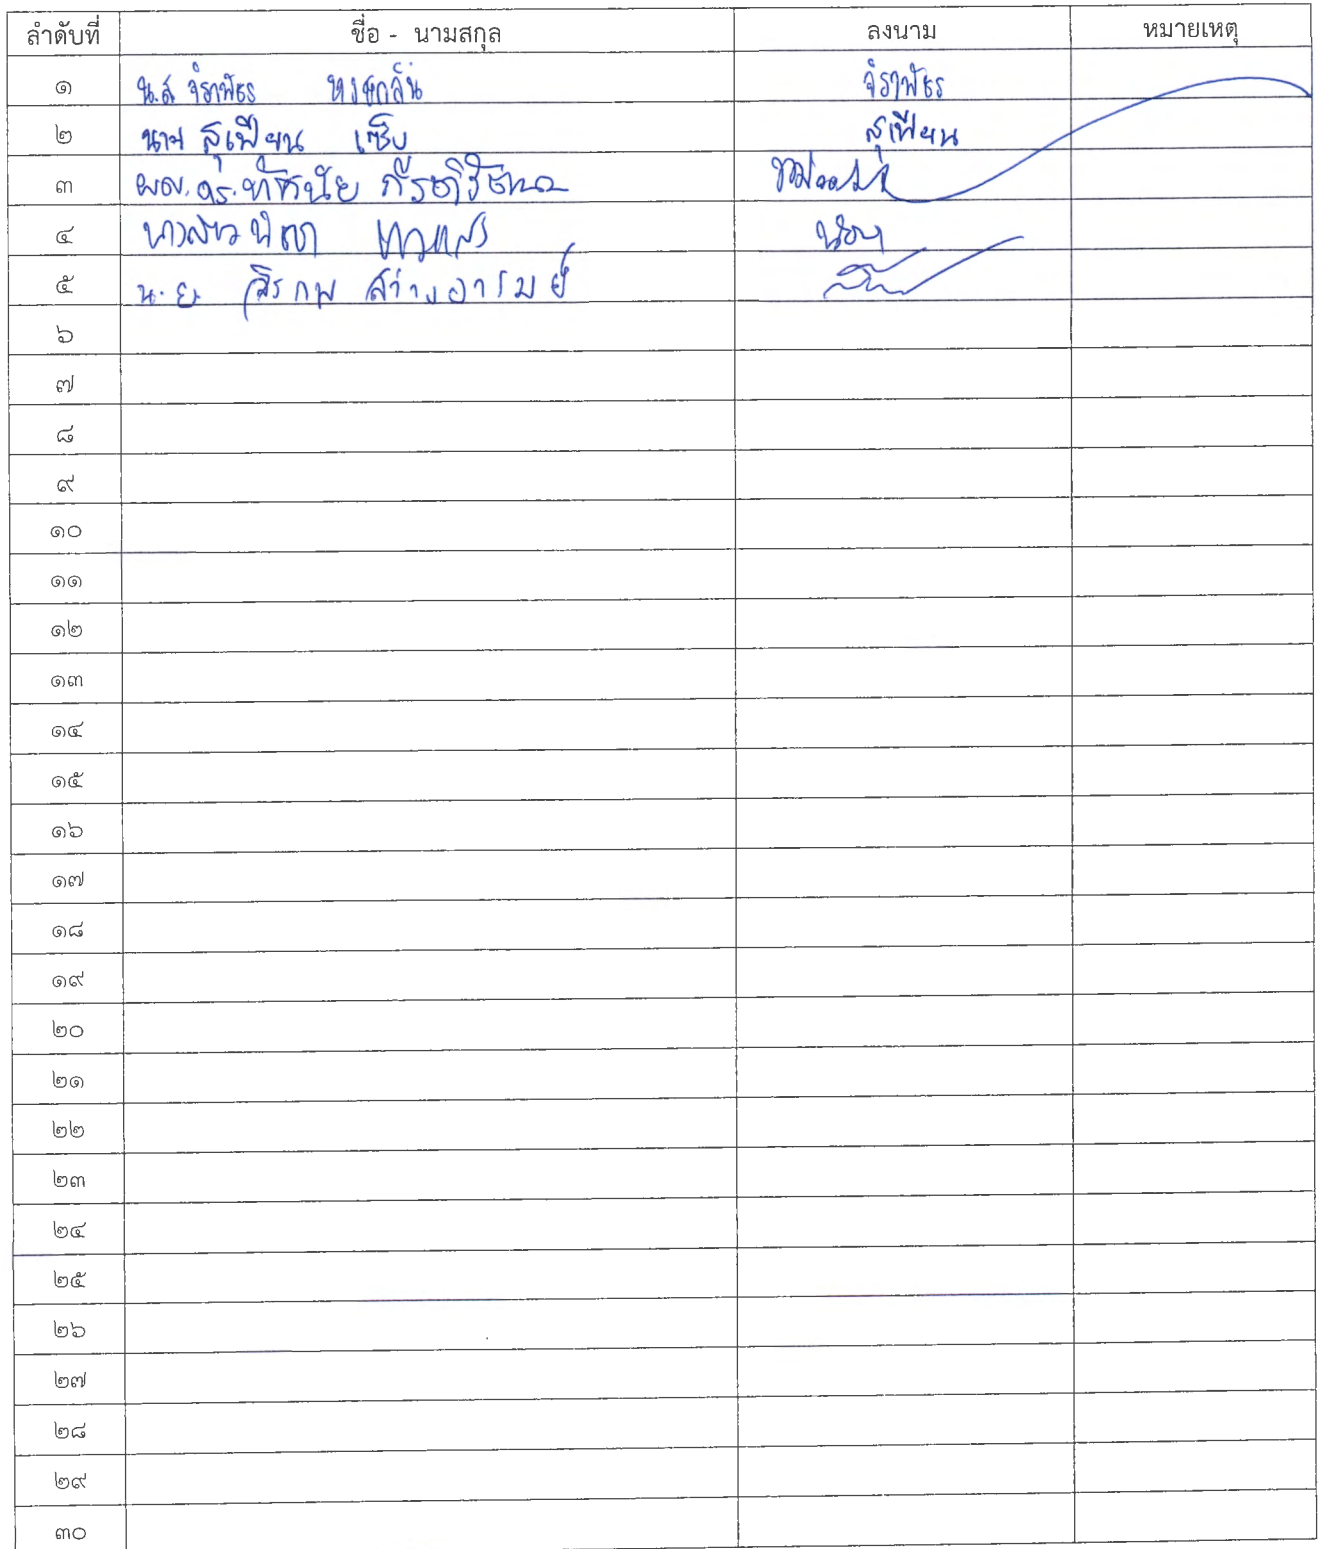 ลำดับที่ ชื่อ - นามสกุล ลงนาม หมายเหตุ
๑ น.ส. จิราพัชร หงษกลั่น จิราพัชร
๒ นาย สุเฟียน เซ็บ สุเฟียน
๓ ผศ.ดร.ทัศนัย
๔ นางสาว
๕ สิรภพ สว่างอารมย์
๖
๗
๘
๙
๑๐
๑๑
๑๒
๑๓
๑๔
๑๕
๑๖
๑๗
๑๘
๑๙
๒๐
๒๑
๒๒
๒๓
๒๔
๒๕
๒๖
๒๗
๒๘
๒๙
๓๐